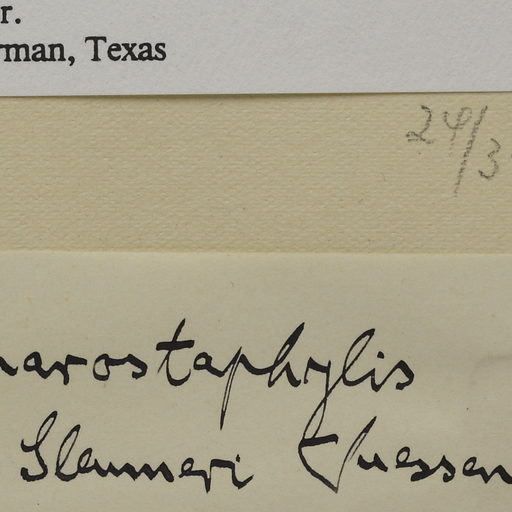 r.
rman, Texas
24/3
narostaphylis
Sleumeri Thuessen